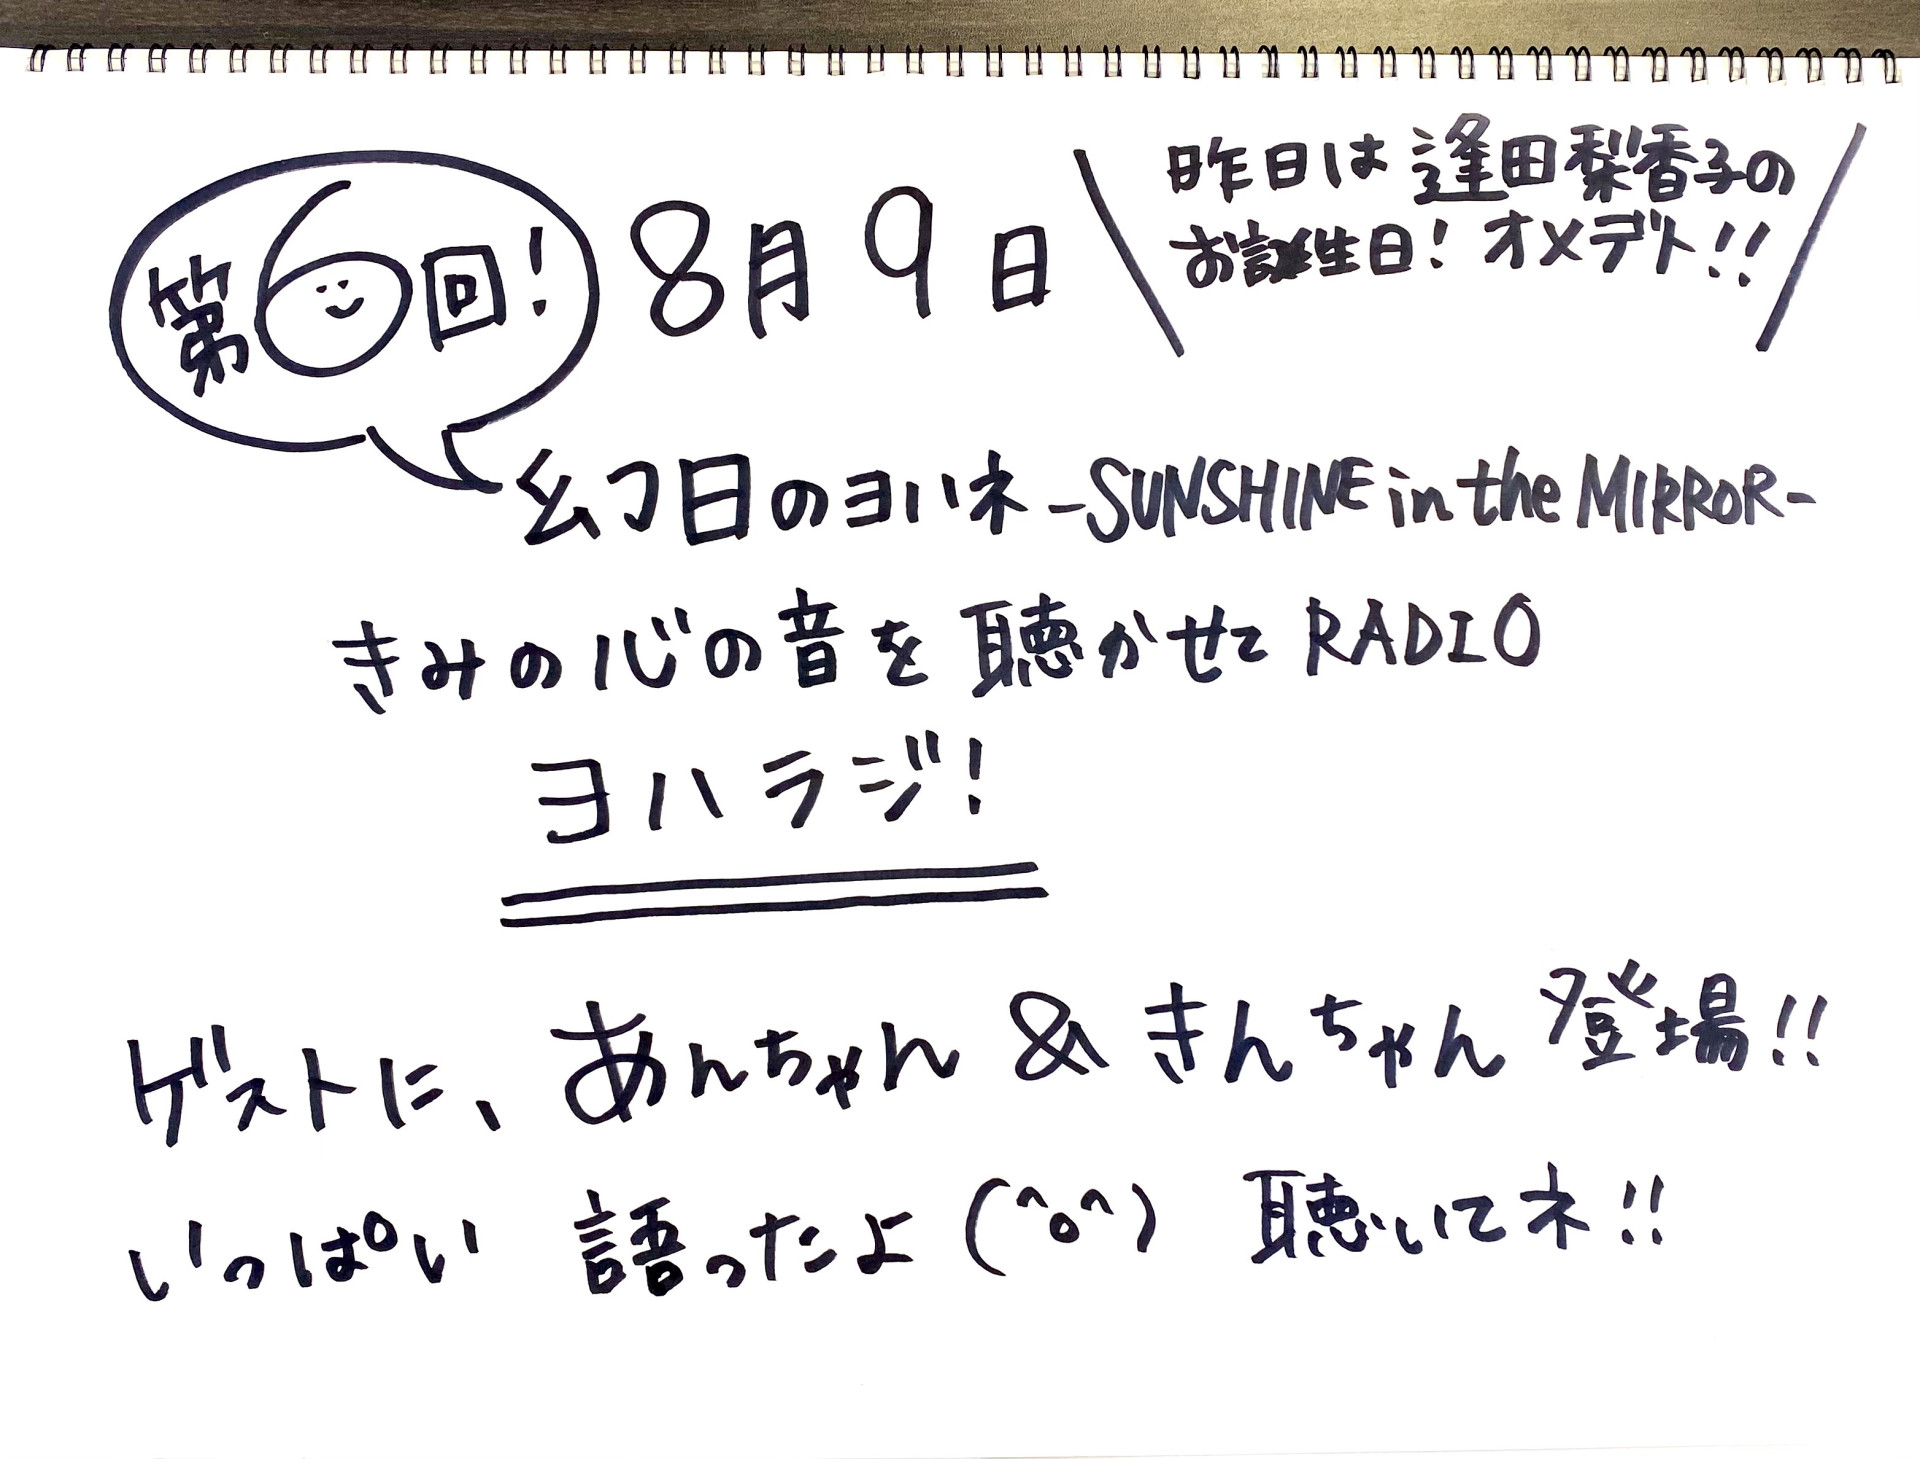 第6回！
8月9日
昨日は逢田梨香子の
お誕生日！オメデト!!
幻日のヨハネ -SUNSHINE in the MIRROR-
きみの心の音を聴かせて RADIO
ヨハラジ！
ゲストに、あんちゃん & きんちゃん 登場!!
いっぱい 語ったよ (^o^) 聴いてネ!!